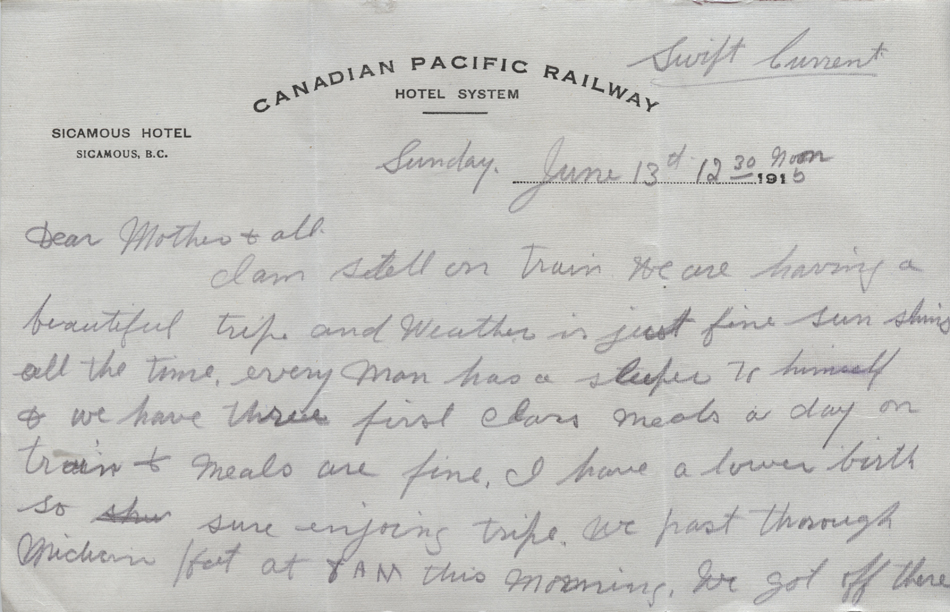 Swift Current
CANADIAN PACIFIC RAILWAY
HOTEL SYSTEM
SICAMOUS HOTEL
SICAMOUS, B.C.
Sunday. June 13th 12 30 Noon 1915
Dear Mother & all.
I am still on train We are having a
beautiful tripe and Weather is just fine sun shing
all the time, every Man has a sleeper to himself
& we have three first class meals a day on
train & Meals are fine, I have a lower birth
so sure enjoing tripe. We past thorough
at 8 AM this Morning, We got off there